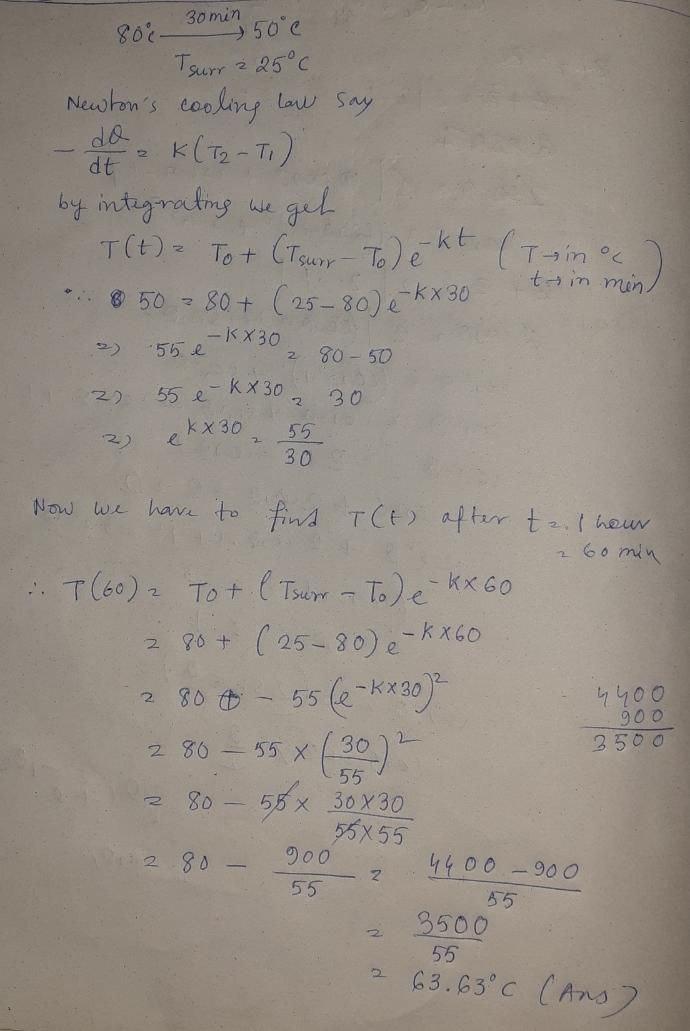 80°c —30min→ 50°c
Tsurr = 25°C
Newton's cooling law say
- dQ/dt = K(T2 - T1)
by integrating we get
T(t) = T0 + (Tsurr - T0) e^-kt (T → in °c
t → in min)
∴ 50 = 80 + (25-80) e^-K×30
=> 55 e^-K×30 = 80-50
=> 55 e^-K×30 = 30
=> e^K×30 = 55/30
Now we have to find T(t) after t = 1 hour
= 60 min
∴ T(60) = T0 + (Tsurr - T0) e^-K×60
= 80 + (25-80) e^-K×60
= 80 - 55 (e^-K×30)^2
4400
900
3500
= 80 - 55 × (30/55)^2
= 80 - 55 × 30×30/55×55
= 80 - 900/55 = 4400-900/55
= 3500/55
= 63.63°C (Ans)